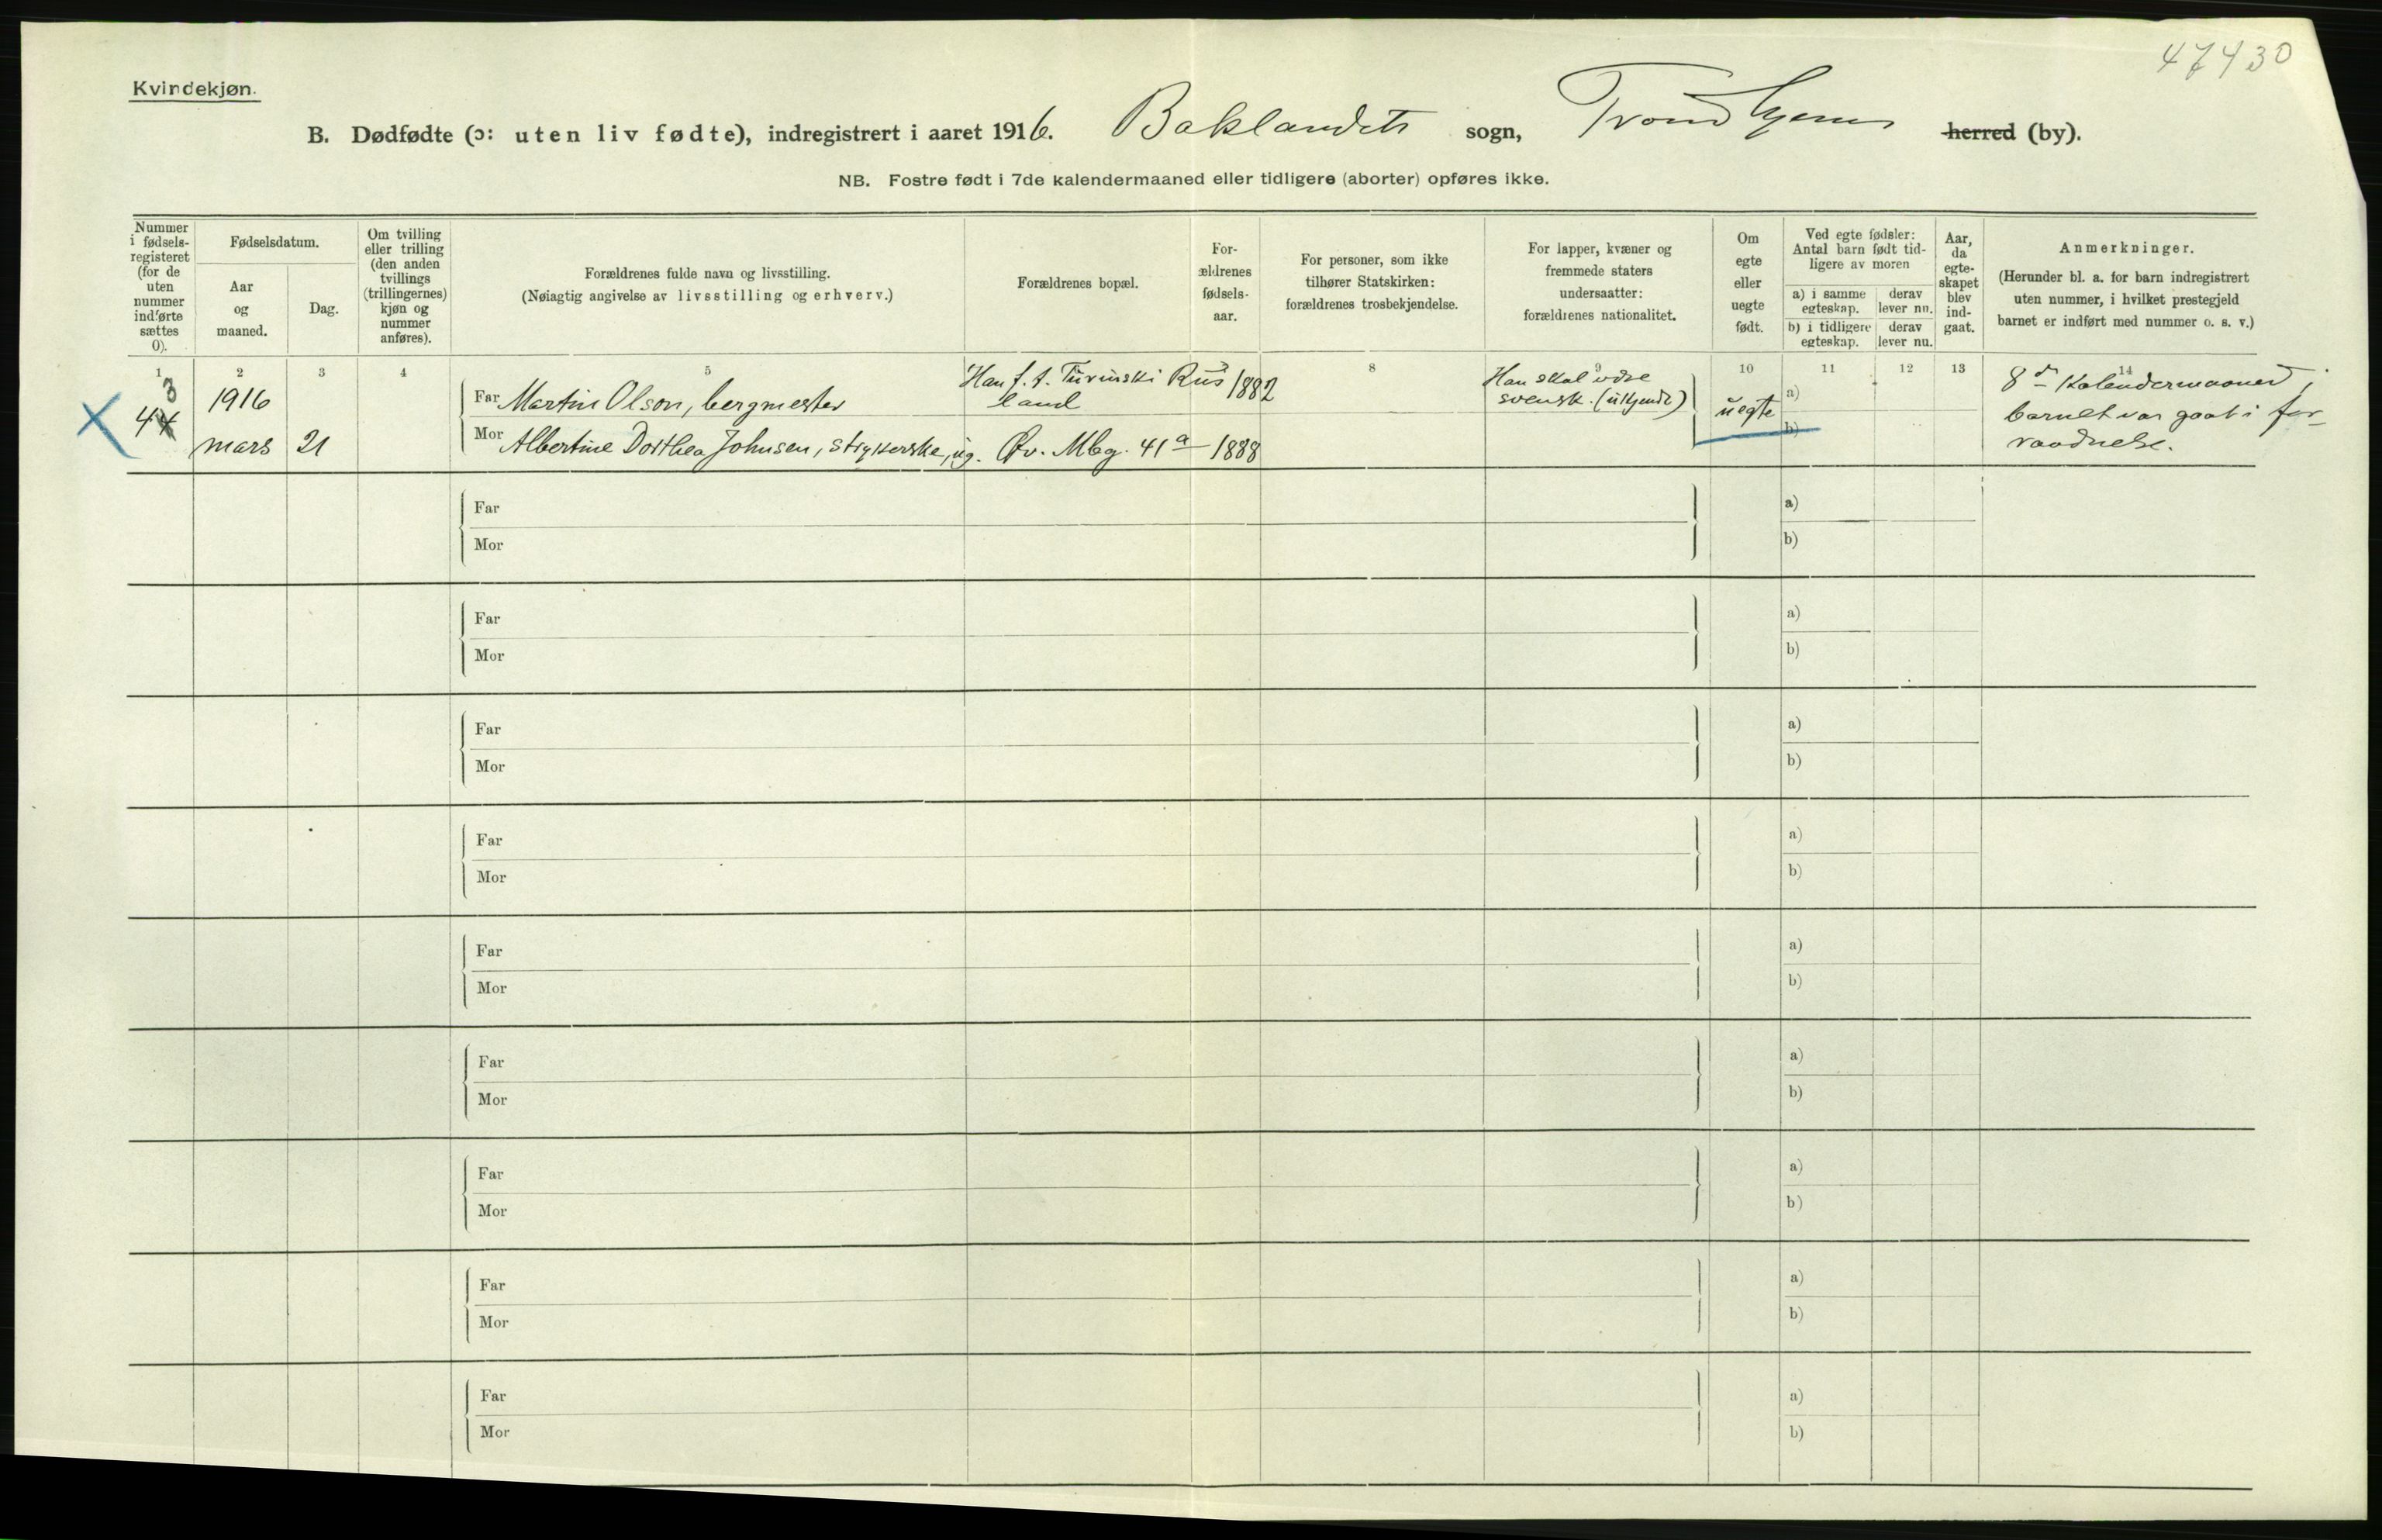 47430
Kvindekjøn.
B. Dødfødte (ɔ: uten liv fødte), indregistrert i aaret 1916. Baklandets sogn, Trondhjems herred (by).
NB. Fostre født i 7de kalendermaaned eller tidligere (aborter) opføres ikke.
Nummer i fødselsregisteret (for de uten nummer indførte sættes 0).
Fødselsdatum.
Aar og maaned.
Dag.
Om tvilling eller trilling (den anden tvillings (trillingernes) kjøn og nummer anføres).
Forældrenes fulde navn og livsstilling.
(Nøiagtig angivelse av livsstilling og erhverv.)
Forældrenes bopæl.
Forældrenes fødselsaar.
For personer, som ikke tilhører Statskirken: forældrenes trosbekjendelse.
For lapper, kvæner og fremmede staters undersaatter: forældrenes nationalitet.
Om egte eller uegte født.
Ved egte fødsler: Antal barn født tidligere av moren
a) i samme egteskap. derav lever nu.
b) i tidligere egteskap. derav lever nu.
Aar, da egteskapet blev indgaat.
Anmerkninger.
(Herunder bl. a. for barn indregistrert uten nummer, i hvilket prestegjeld barnet er indført med nummer o. s. v.)
1 2 3 4 5 7 8 9 10 11 12 13 14
3
44
1916
mars 21
Far Martin Olson, bergmester
Mor Albertine Dorthea Johnsen, strykerske, ug.
Han f. t. Turinski Rus
land
Øv. Mbg. 41a
1882
1888
Han skal være
svensk. (ukjendt)
uegte
a)
b)
8de Kalendermaaned;
barnet var gaat i for-
raadnelse.
Far a)
Mor b)
Far a)
Mor b)
Far a)
Mor b)
Far a)
Mor b)
Far a)
Mor b)
Far a)
Mor b)
Far a)
Mor b)
Far a)
Mor b)
Far a)
Mor b)